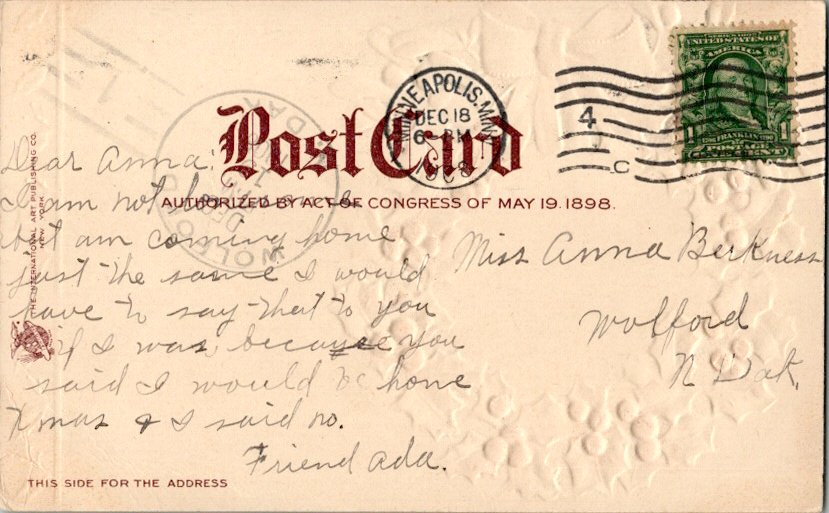 SERIES 1902
UNITED STATES OF
AMERICA
1 FRANKLIN 1
POSTAGE
MINNEAPOLIS, MINN.
DEC 18
6-PM
4
C
Post Card
AUTHORIZED BY ACT OF CONGRESS OF MAY 19. 1898.
WOLFORD
DAK.
DEC
THE INTERNATIONAL ART PUBLISHING CO.
NEW YORK
Dear Anna:
I am not
but am coming home
just the same I would
have to say that to you
if I was because you
said I would be home
Xmas & I said no.
Friend Ada.
Miss Anna Berkness
Wolford
N Dak.
THIS SIDE FOR THE ADDRESS